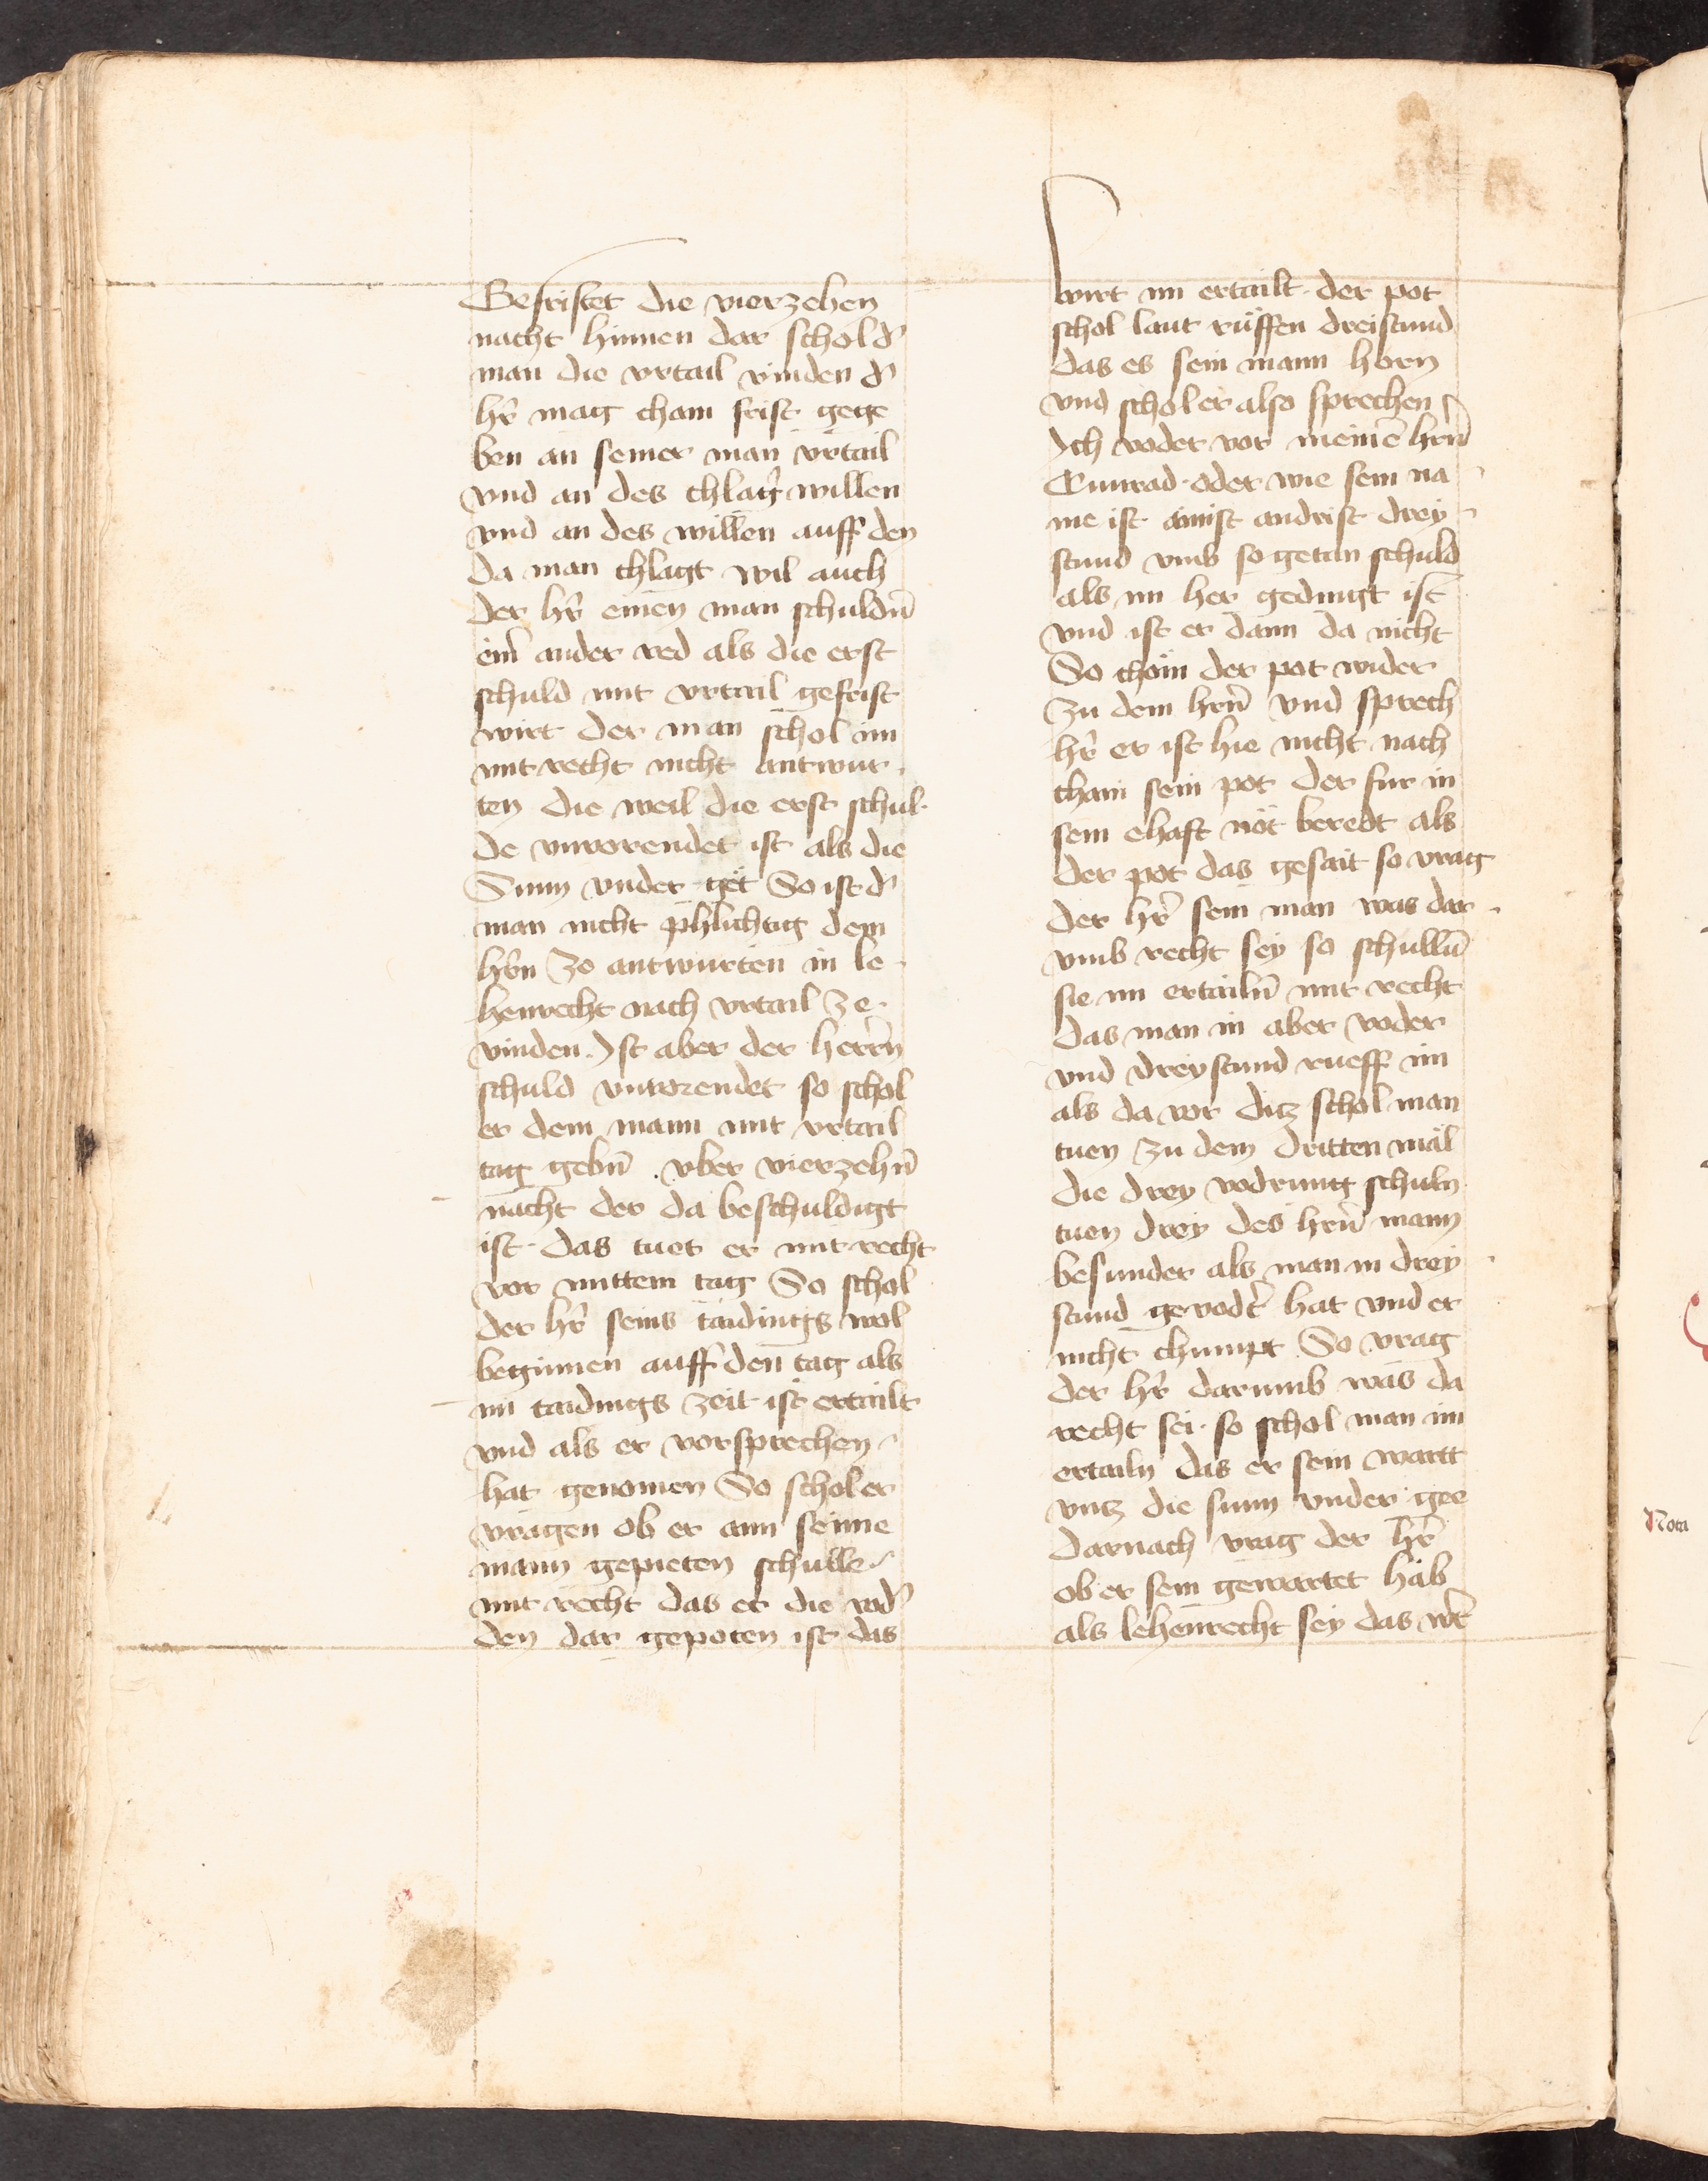 Gefristet die vierzehen
nacht hinnen dar schol dˀ
man die vrtail vinden dˀ
hr̄ mag chain frist gege
ben an seiner man vrtail
vnd an des chlaḡ willen
vnd an des willen auff den
da man chlagt wil auch
der hr̄ einen man schuldn̄
eim̄ ander red als die erst
schuld mit vrtail gefrist
wirt der man schol im
mit recht nicht antwur
ten die weil die erst schul
de vnvorendet ist als die
Sunn vnder get So ist dˀ
man nicht phlichtig dem
hrn̄ zo antwurten in le
henrecht nach vrtail ze
vinden. Ist aber der herrn̄
schuld vnvorendet so schol
er dem mann mit vrtail
tag gebn̄ . vber vierzehn̄
nacht der da beschuldigt
ist. das tuet er mit recht
vor mittem tag So schol
der hr̄ seins taidings wol
beginnen auff den tag als
im taidings zeit ist ertailt
vnd als er vorsprechen
hat genomen So schol er
vragen ob er ann seine
mann gepieten schulle
mit recht das er die vodˀ
den dar gepoten ist das
wirt im ertailt. der pot
schol laut rüffen dreistund
das es sein mann horn
vnd schol er also sprechen
Ich voder vor meinē hrn̄
Cunrad. oder wie sein na
me ist ainist andrist drey
stund vmb so getan schuld
als im her gedingt ist
vnd ist er dann da nicht
So chöm der pot wider
zu dem hrn̄ vnd sprech
hr̄ er ist hie nicht nach
chain sein pot der fur in
sein ehaft nöt beredt als
der pot das gesait so vrag
der hr̄ sein man was dar
vmb recht sey so schulln̄
sie im ertailn̄ mit recht
das man in aber voder
vnd drey stund rueff im
als da vor ditz schol man
tuen zu dem dritten mäl
die drey vodrung schuln
tuen drey des hrn̄ mann
besunder als man in drey
stund gevodr̄t hat vnd er
nicht chumpt So vrag
der hr̄ darumb was da
recht sei. so schol man im
ertailn das er sein wartt
vntz die sunn vnder gee
darnach vrag der hr̄
ob er sein gewartet hab
als lehenrecht sey das wr̄t
Nota